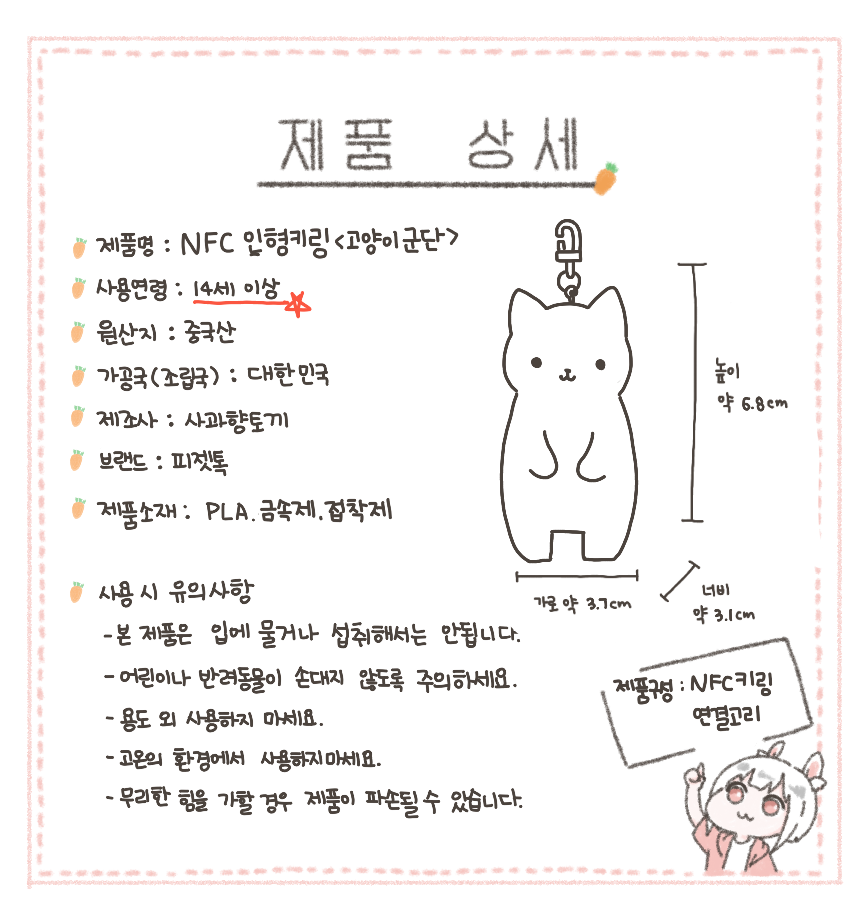 제품 상세
제품명 : NFC 인형키링 <고양이군단>
사용연령 : 14세 이상
원산지 : 중국산
가공국(조립국) : 대한민국
제조사 : 사과향토끼
브랜드 : 피젯톡
제품소재 : PLA, 금속제, 접착제
높이
약 6.8cm
가로 약 3.7cm
너비
약 3.1cm
사용 시 유의사항
-본 제품은 입에 물거나 섭취해서는 안됩니다.
-어린이나 반려동물이 손대지 않도록 주의하세요.
-용도 외 사용하지 마세요.
-고온의 환경에서 사용하지마세요.
-무리한 힘을 가할 경우 제품이 파손될 수 있습니다.
제품구성 : NFC키링
연결고리